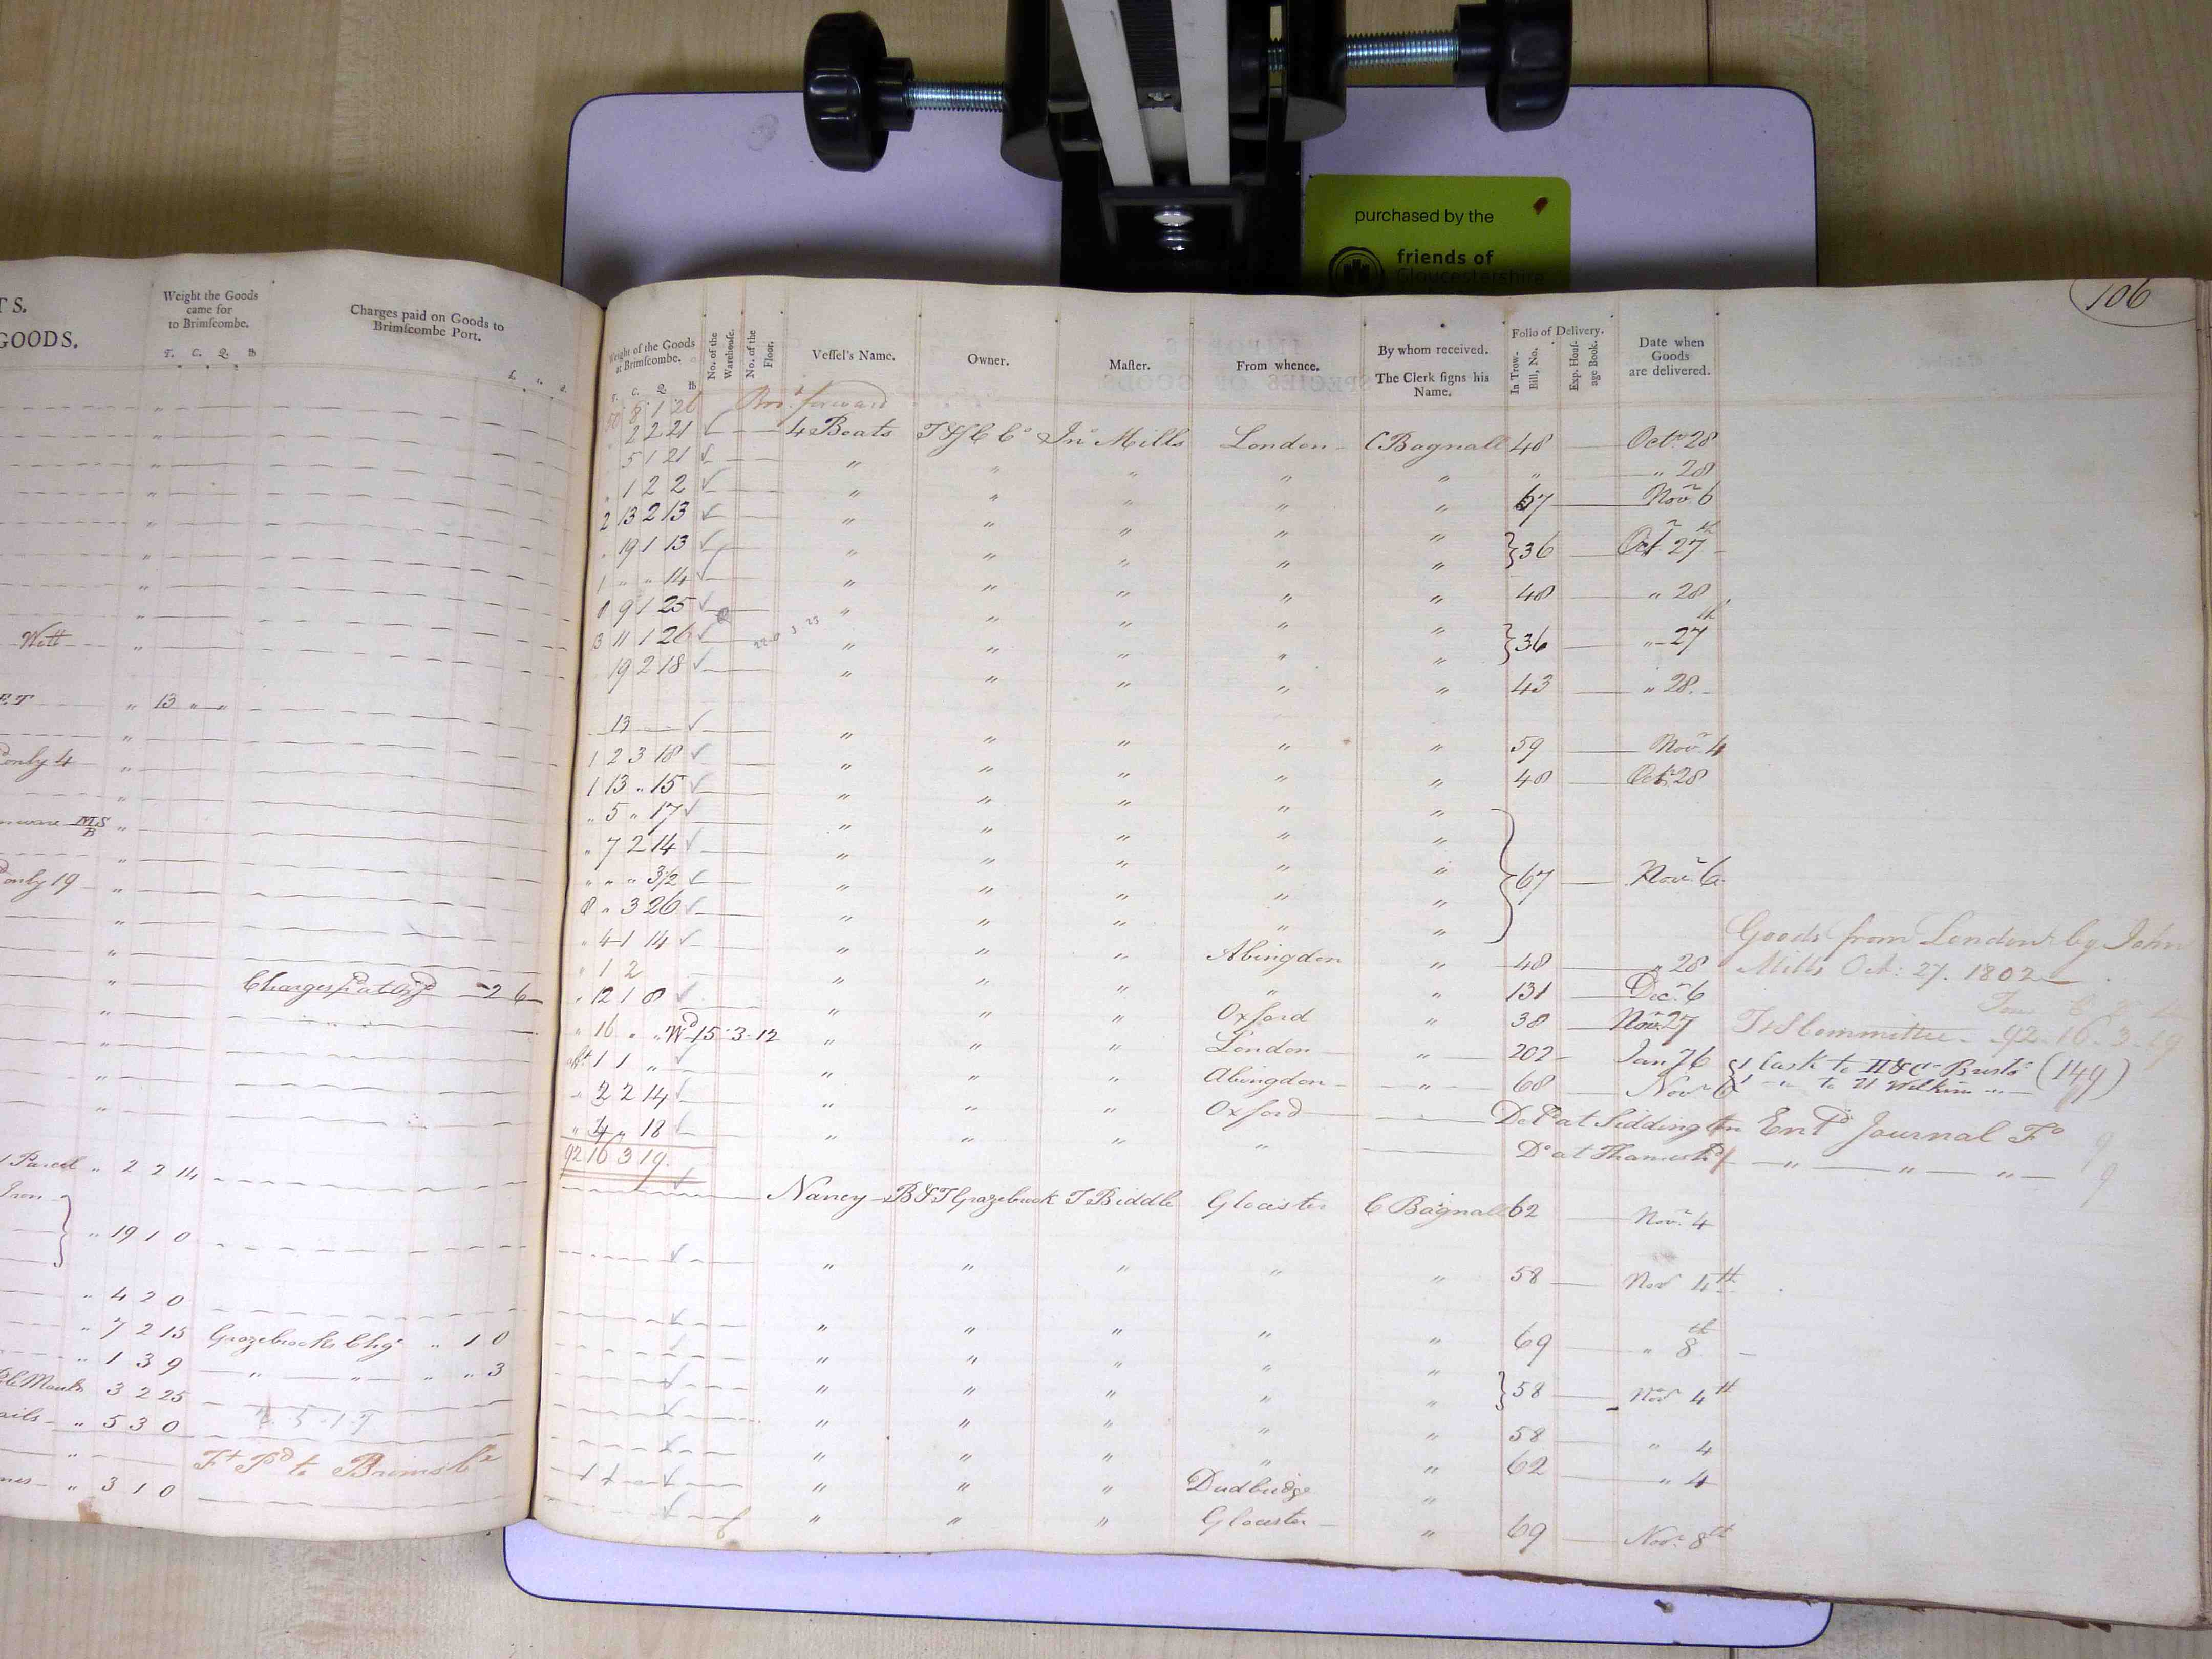 purchased by the
friends of
Gloucestershire
106
TS.
GOODS.
Weight the Goods
came for
to Brimscombe.
T. C. Q. lb
Charges paid on Goods to
Brimscombe Port.
£. s. d.
Wett
ET " 13 " "
only 4 "
ware MS/B "
only 19 "
Charges pd at 2 6
1 Parcel " 2 2 14
Iron
" 19 1 0
" 4 2 0
" 7 2 15 Grazebrooks Chgs " 1 0
" 1 3 9 " " " " 3
3 2 25
ails " 5 3 0
Ft Pd to Brimsbe
" 3 1 0
Weight of the Goods
at Brimscombe.
T. C. Q. lb
No. of the
Warehouse.
No. of the
Floor.
Vessel's Name.
Owner.
Master.
From whence.
By whom received.
The Clerk signs his
Name.
Folio of Delivery.
In Trow-
Bill, No.
Exp. Hous-
age Book.
Date when
Goods
are delivered.
50 8 1 26 Brot forward
" 2 2 21 4 Boats T&S C Co Jno Mills London C Bagnall 48 Octr 28
5 1 21 " " " " " " " 28
" 1 2 2 " " " " " 67 Novr 6
2 13 2 13 " " " " "
" 19 1 13 " " " " " } 36 Octr 27th
1 " " 14 " " " " " 48 " 28
8 9 1 25 " " " " "
13 11 1 26 " " " " " } 36 " 27th
19 2 18 " " " " " 43 " 28
13 " " " " " 59 Novr 4
1 2 3 18 " " " " " 48 Octr 28
1 13 " 15 " " " " "
" 5 " 17 " " " " "
" 7 2 14 " " " " " } 67 Novr 6
" " " 3/2 " " " " "
8 " 3 26 " " " " "
" 4 1 14 " " " Abingdon " 48 " 28
" 1 2 " " " " " 131 Decr 6
" 12 1 8 " " " Oxford " 38 Novr 27
" 16 " " Wd 15-3-12 " " " London " 202 Jany 26 { 1 Cask to H&C Bristo (149)
1 1 " " " " Abingdon " 68 Novr 6 1 " to W Wilkins "
" 2 2 14 " " " Oxford Deld at Siddington Entd Journal Fo 9
" 4 " 18 " " " " Do at Thames " " " 9
92 16 3 19
Goods from London by John
Mills Oct: 27. 1802
Tons C Q lb
T&S Committee 92 16 3 19
Nancy B&T Grazebrook T Biddle Glocister C Bagnall 62 Novr 4
" " " " " 58 Novr 4th
" " " " " 69 " 8th
" " " " "
" " " " " } 58 Novr 4th
" " " " " 58 " 4
" " " " " 62 " 4
" " " Dudbridge "
" " " Glocester " 69 Novr 8th